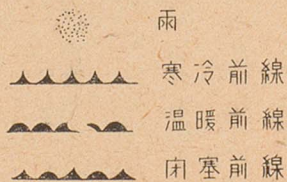 雨
寒冷前線
温暖前線
閉塞前線